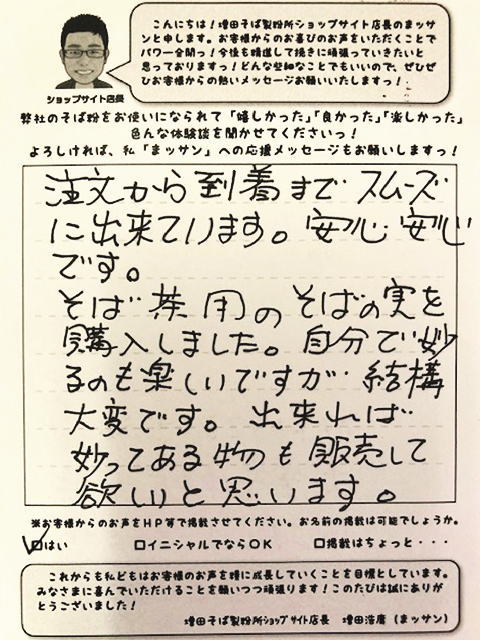 こんにちは！増田そば製粉所ショップサイト店長のまッサ
ンと申します。お客様からのお喜びのお声をいただくことで
パワー全開っ！今後も精進して挽きに頑張っていきたいと
思っておりますっ！どんな些細なことでもいいので、ぜひぜ
ひお客様からの熱いメッセージお願いいたしますっ！
ショップサイト店長
弊社のそば粉をお使いになられて「嬉しかった」「良かった」「楽しかった」
色んな体験談を聞かせてくださいっ！
よろしければ、私「まッサン」への応援メッセージもお願いしますっ！
注文から到着まで スムーズ
に出来ています。安心 安心
です。
そば 茶 用のそばの実を
購入しました。自分で妙
るのも楽しいですが 結構
大変です。出来れば
妙ってある物も販売して
欲しいと思います。
※お客様からのお声をHP等で掲載させてください。お名前の掲載は可能でしょうか。
☑はい □イニシャルでならOK □掲載はちょっと・・・
これからも私どもはお客様のお声を糧に成長していくことを目標としています。
みなさまに喜んでいただけることを願いつつ頑張ります！このたびは誠にありが
とうございました！
増田そば製粉所ショップサイト店長 増田浩庸（まッサン）